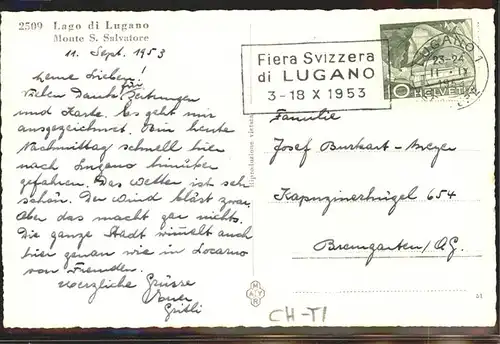 2509 Lago di Lugano
Monte S. Salvatore
11. Sept. 1953
Meine Lieben!
Vielen Dank für Zeitungen
und Karte. Es geht mir
ausgezeichnet. Bin heute
Nachmittag schnell hier
nach Lugano hinüber
gefahren. Das Wetter ist sehr
schön. Der Wind bläst zwar,
aber das macht gar nichts.
Die ganze Stadt wimelt auch
hier genau wie in Locarno
von Fremden.
Herzliche Grüsse
Euer
Gritli
Fiera Svizzera
di LUGANO
3-18 X 1953
LUGANO 1
23-24
HELVETIA
Familie
Josef Burkart-Meyer
Kapuzinerhügel 654
Bremgarten/AG.
CH-TI